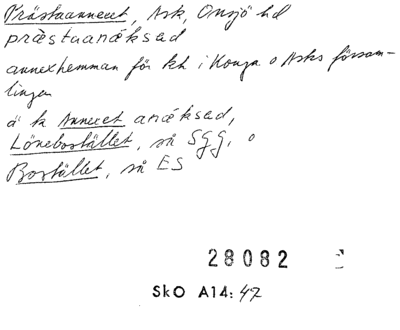 Prästaannexet, Ask, Onsjö hd
præstuanæksad
annexhemman för kh i Konga o Asks försam-
lingen
ä k Annexet anæksad,
Lönebostället, så SGG, o
Bostället, så ES
28082
SkO A14: 47